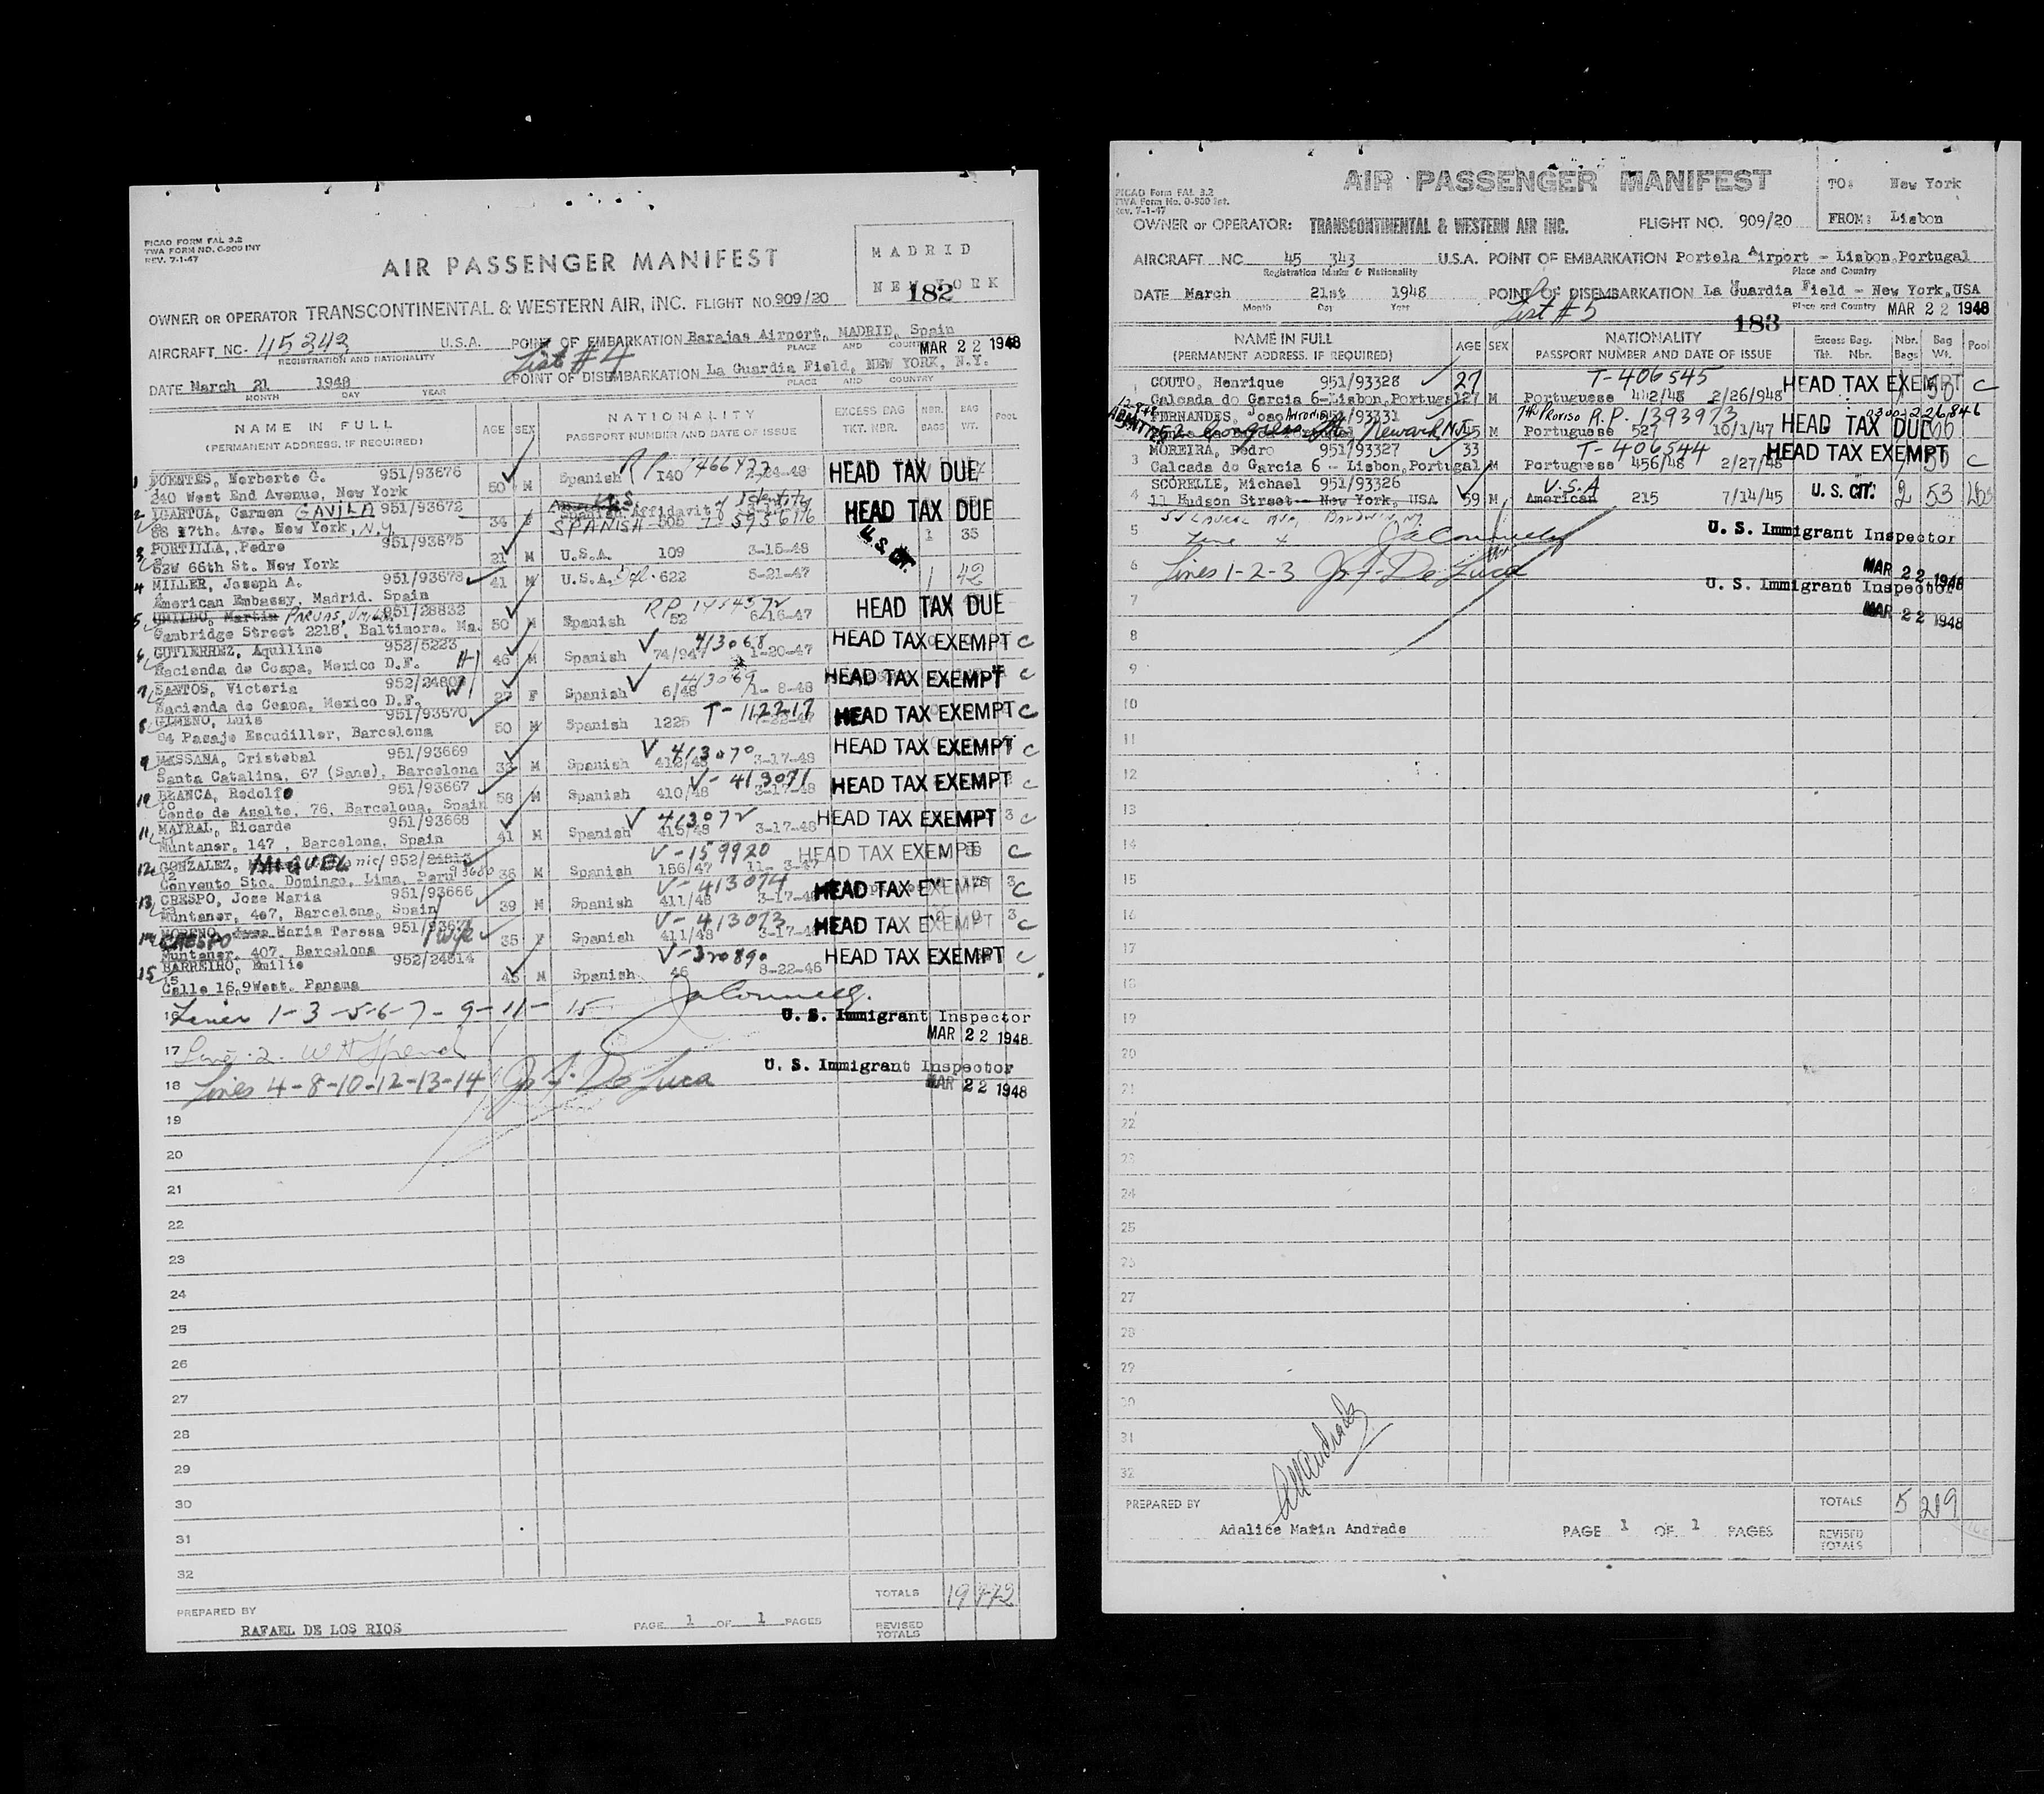 PICAO FORM FAL 3.2
TWA FORM NO. 0-900 INT
REV. 7-1-47
AIR PASSENGER MANIFEST
MADRID
NEW YORK
182
OWNER OR OPERATOR TRANSCONTINENTAL & WESTERN AIR, INC. FLIGHT NO. 909/20
AIRCRAFT NC- 45343 U.S.A. POINT OF EMBARKATION Barajas Airport, MADRID, Spain
REGISTRATION AND NATIONALITY PLACE AND COUNTRY
MAR 22 1948
List #4
DATE March 21 1948 POINT OF DISEMBARKATION La Guardia Field, NEW YORK, N.Y.
MONTH DAY YEAR PLACE AND COUNTRY
NAME IN FULL AGE SEX NATIONALITY EXCESS BAG NBR. BAG POOL
(PERMANENT ADDRESS, IF REQUIRED) PASSPORT NUMBER AND DATE OF ISSUE TKT. NBR. BAGS WT.
1 FUENTES, Norberto G. 951/93676 50 M Spanish RP 140 HEAD TAX DUE
240 West End Avenue, New York
2 YGARTUA, Carmen GAVILA 951/93672 Affidavit of Identity HEAD TAX DUE
88 7th. Ave. New York, N.Y. 34 SPANISH 1 35
3 PORTILLA, Pedro 951/93675 21 M U.S.A. 109 3-15-48 U.S. CIT.
52W 66th St. New York
4 MILLER, Joseph A. 951/93678 41 M U.S.A. 622 5-21-47 1 42
American Embassy, Madrid. Spain
5 951/28832 50 M Spanish RP 52 6-16-47 HEAD TAX DUE
Cambridge Street 2218, Baltimore. Ma.
6 GUTIERREZ, Aquilino 952/5223 46 M Spanish V 413068 74/947 1-20-47 HEAD TAX EXEMPT C
Hacienda de Coapa, Mexico D.F. H/
7 SANTOS, Victoria W/ 27 F Spanish V 413069 6/48 1-8-48 HEAD TAX EXEMPT C
Hacienda de Coapa, Mexico D.F.
8 GIMENO, Luis 951/93570 50 M Spanish 1225 T-112217 HEAD TAX EXEMPT C
94 Pasaje Escudiller, Barcelona
9 MESSANA, Cristobal 951/93669 33 M Spanish V 413070 412/48 3-17-48 HEAD TAX EXEMPT C
Santa Catalina, 67 (Sans), Barcelona
10 BLANCA, Rodolfo 951/93667 58 M Spanish V-413071 410/48 3-17-48 HEAD TAX EXEMPT C
Conde de Asalto, 76, Barcelona, Spain
11 MAYRAL, Ricardo 951/93668 41 M Spanish V 413072 415/48 3-17-48 HEAD TAX EXEMPT 3 C
Muntaner, 147, Barcelona, Spain
12 GONZALEZ, MIGUEL 952/ 36 M Spanish V-159920 156/47 11-3-47 HEAD TAX EXEMPT C
Convento Sto. Domingo, Lima, Peru
13 CRESPO, Jose Maria 951/93666 39 M Spanish V-413074 411/48 3-17-48 HEAD TAX EXEMPT 3 C
Muntaner, 407, Barcelona, Spain
14 MORENO, Maria Teresa 35 F Spanish V-413073 411/48 3-17-48 HEAD TAX EXEMPT 3 C
CRESPO Wife
Muntaner, 407, Barcelona
15 BARREIRO, Emilio 952/24514 45 M Spanish V-320890 46 8-22-46 HEAD TAX EXEMPT C
Calle 16,9West. Panama
16 Lines 1-3-5-6-7-9-11-15 JaConnell
U. S. Immigrant Inspector
MAR 22 1948
17 Line 2
18 Lines 4-8-10-12-13-14 De Luca
U. S. Immigrant Inspector
MAR 22 1948
19
20
21
22
23
24
25
26
27
28
29
30
31
32
TOTALS 19
PREPARED BY
RAFAEL DE LOS RIOS PAGE 1 OF 1 PAGES
REVISED TOTALS
PICAO Form FAL 3.2
TWA Form No. 0-900 Int.
Rev. 7-1-47
AIR PASSENGER MANIFEST
TO: New York
FROM: Lisbon
OWNER or OPERATOR: TRANSCONTINENTAL & WESTERN AIR INC. FLIGHT NO. 909/20
AIRCRAFT NC 45 343 U.S.A. POINT OF EMBARKATION Portela Airport - Lisbon, Portugal
Registration Marks & Nationality Place and Country
DATE March 21st 1948 POINT OF DISEMBARKATION La Guardia Field - New York, USA
Month Day Year Place and Country
List #5
MAR 22 1948
183
NAME IN FULL AGE SEX NATIONALITY Excess Bag. Nbr. Bag Pool
(PERMANENT ADDRESS, IF REQUIRED) PASSPORT NUMBER AND DATE OF ISSUE Tkt. Nbr. Bags Wt.
1 COUTO, Henrique 951/93328 27 T-406545 HEAD TAX EXEMPT C
Calcada do Garcia 6-Lisbon, Portugal 27 M Portuguese 442/48 2/26/948
FERNANDES, Joao Antonio 951/93331 7th Proviso R.P. 1393973 0300-226846
Newark NJ 45 M Portuguese 527 10/1/47 HEAD TAX DUE
3 MOREIRA, Pedro 951/93327 33 T-406544 HEAD TAX EXEMPT
Calcada do Garcia 6 - Lisbon, Portugal M Portuguese 456/48 2/27/48 C
4 SCORELLE, Michael 951/93326 U.S.A
11 Hudson Street-- New York, USA 59 M American 215 7/14/45 U.S. CIT. 2 53
5 Line 4 JaConnell
U. S. Immigrant Inspector
MAR 22 1948
6 Lines 1-2-3 De Luca
U. S. Immigrant Inspector
MAR 22 1948
7
8
9
10
11
12
13
14
15
16
17
18
19
20
21
22
23
24
25
26
27
28
29
30
31
32
PREPARED BY
Adalice Maria Andrade PAGE 1 OF 1 PAGES
TOTALS 5 219
REVISED TOTALS